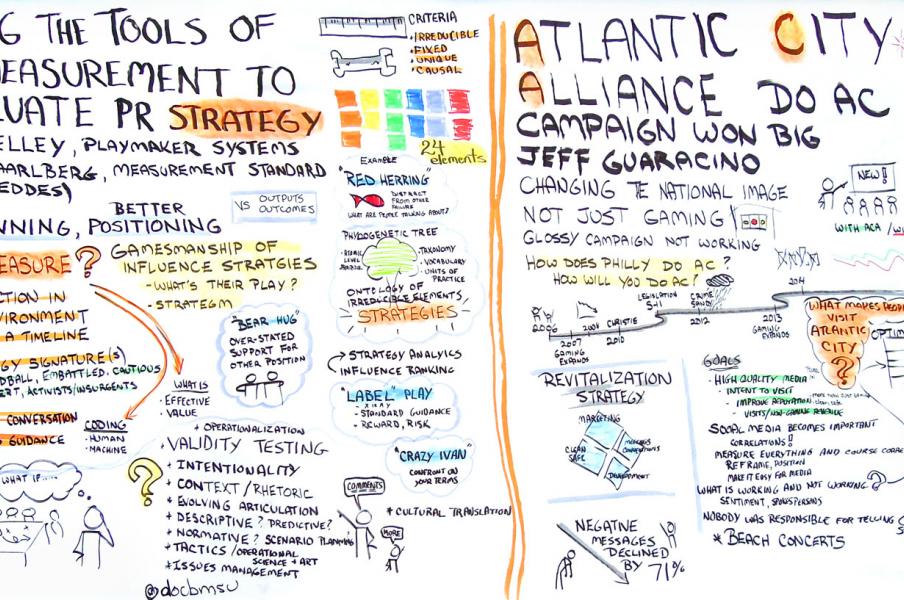 G THE TOOLS OF
EASUREMENT TO
LUATE PR STRATEGY
ELLEY, PLAYMAKER SYSTEMS
AARLBERG, MEASUREMENT STANDARD
EDDES)
BETTER
NNING, POSITIONING
VS OUTPUTS
OUTCOMES
EASURE?
CTION IN
VIRONMENT
A TIMELINE
GY SIGNATURE(S)
DBALL, EMBATTLED, CAUTIOUS
ERT, ACTIVISTS/INSURGENTS
CONVERSATION
GUIDANCE
CODING
- HUMAN
- MACHINE
WHAT IF....
GAMESMANSHIP OF
INFLUENCE STRATGIES
- WHAT'S THEIR PLAY?
- STRATEGM
"BEAR HUG"
OVER-STATED
SUPPORT FOR
OTHER POSITION
WHAT IS
- EFFECTIVE
- VALUE
+ OPERATIONALIZATION
+ VALIDITY TESTING
+ INTENTIONALITY
+ CONTEXT / RHETORIC
+ EVOLVING ARTICULATION
+ DESCRIPTIVE? PREDICTIVE?
+ NORMATIVE? SCENARIO PLANNING
+ TACTICS / OPERATIONAL
SCIENCE + ART
+ ISSUES MANAGEMENT
@docbmsu
CRITERIA
- IRREDUCIBLE
- FIXED
- UNIQUE
- CAUSAL
24
elements
EXAMPLE
"RED HERRING"
DISTRACT
FROM OTHER
FAILURE
WHAT ARE PEOPLE TALKING ABOUT?
PHYLOGENETIC TREE
- ATOMIC
LEVEL
- TAXONOMY
- VOCABULARY
- UNITS OF
PRACTICE
ONTOLOGY OF
IRREDUCIBLE ELEMENTS
STRATEGIES
STRATEGY ANALYTICS
INFLUENCE RANKING
"LABEL" PLAY
- STANDARD GUIDANCE
- REWARD, RISK
"CRAZY IVAN"
CONFRONT ON
YOUR TERMS
COMMENTS
MORE
* CULTURAL TRANSLATION
ATLANTIC CITY
ALLIANCE DO AC
CAMPAIGN WON BIG
JEFF GUARACINO
CHANGING TE NATIONAL IMAGE
NOT JUST GAMING
GLOSSY CAMPAIGN NOT WORKING
HOW DOES PHILLY DO AC?
HOW WILL YOU DO AC?
NEW!
WITH ACA /
2006
2007
GAMING
EXPANDS
CHRISTIE
2010
LEGISLATION
2012
SANDY
2013
GAMING
EXPANDS
2014
WHAT MAKES PEOP
VISIT
ATLANTIC
CITY
?
OPTIM
REVITALIZATION
STRATEGY
MARKETING
CLEAN
SAFE
DEVELOPMENT
NEGATIVE
MESSAGES
DECLINED
BY 71%
GOALS
- HIGH QUALITY MEDIA
- INTENT TO VISIT
- IMPROVE REPUTATION
- VISITS/NON-GAMING REVENUE
SOCIAL MEDIA BECOMES IMPORTANT
CORRELATIONS!
MEASURE EVERYTHING AND COURSE CORRE
REFRAME, POSITION
MAKE IT EASY FOR MEDIA
WHAT IS WORKING AND NOT WORKING?
SENTIMENT, SPOKESPERSONS
NOBODY WAS RESPONSIBLE FOR TELLING
* BEACH CONCERTS